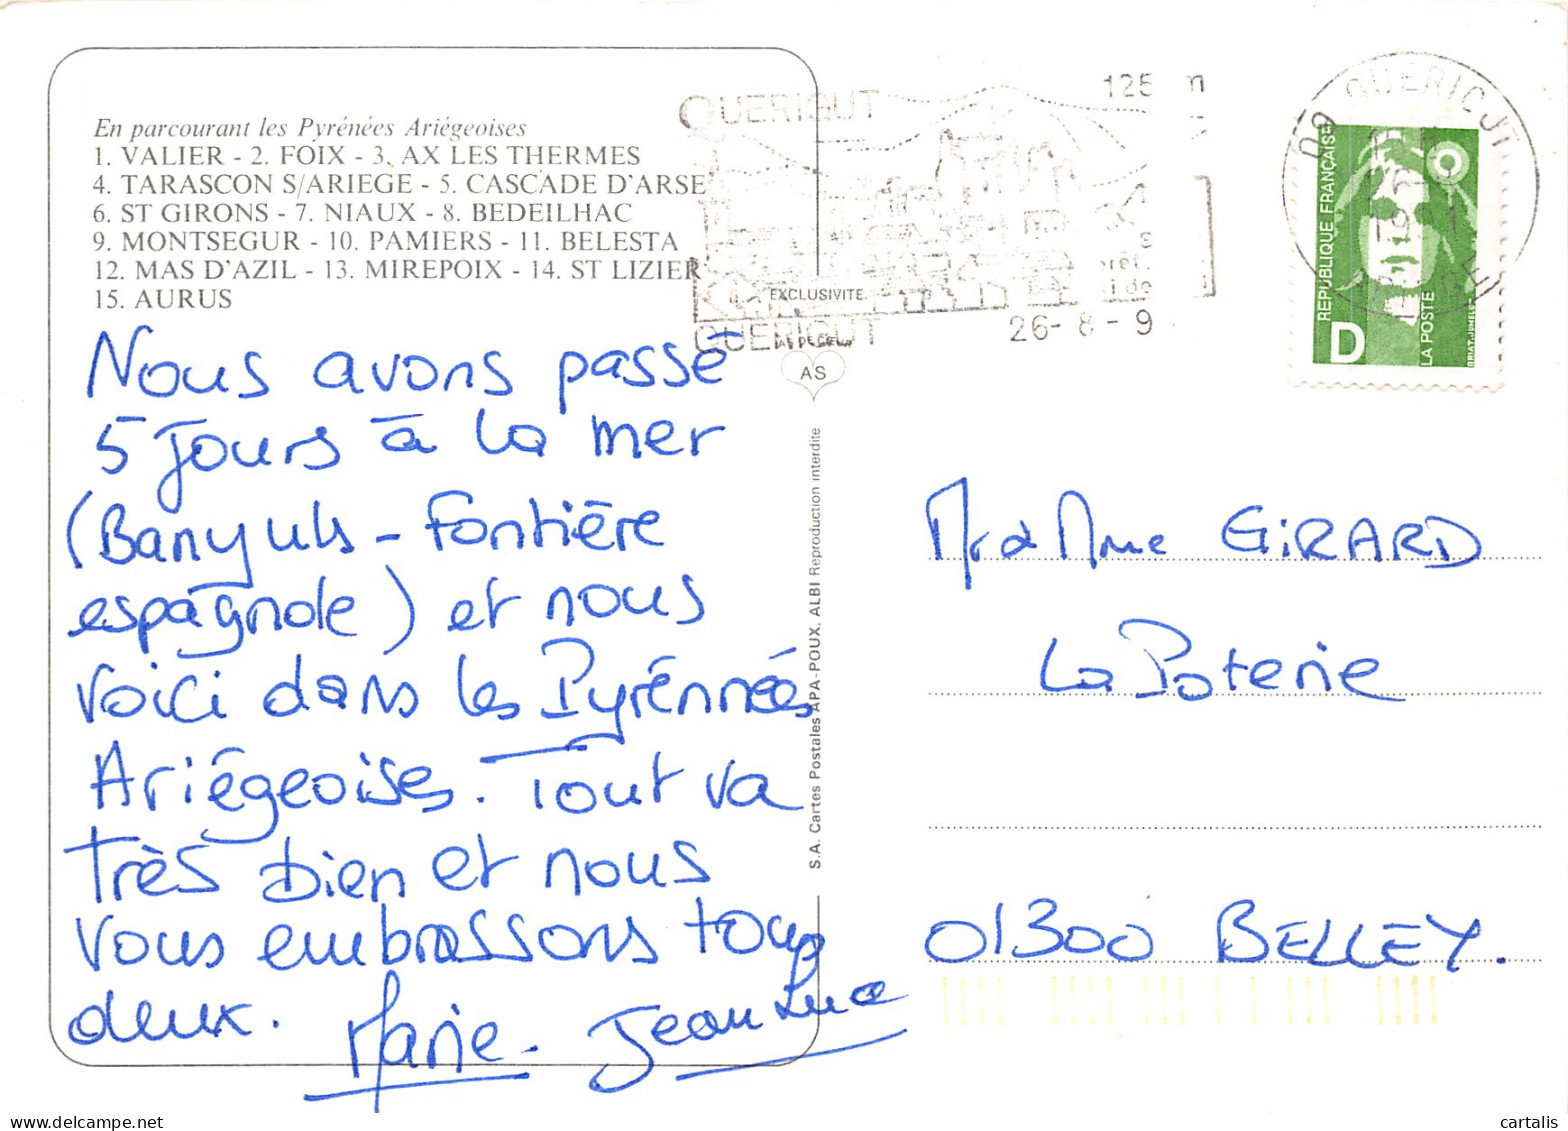 En parcourant les Pyrénées Ariégeoises
1. VALIER - 2. FOIX - 3. AX LES THERMES
4. TARASCON S/ARIEGE - 5. CASCADE D'ARSE
6. ST GIRONS - 7. NIAUX - 8. BEDEILHAC
9. MONTSEGUR - 10. PAMIERS - 11. BELESTA
12. MAS D'AZIL - 13. MIREPOIX - 14. ST LIZIER
15. AURUS
Nous avons passé
5 jours à la mer
(Banyuls - Fontière
espagnole) et nous
voici dans les Pyrénnées
Ariégeoises. Tout va
très bien et nous
vous embrassons tous
deux. Marie - Jean Luc
QUERIGUT
125 m
EXCLUSIVITE
QUERIGUT
26-8-9
AS DE CŒUR
AS
S.A. Cartes Postales APA-POUX. ALBI Reproduction interdite
09 QUERIGUT
REPUBLIQUE FRANÇAISE
D
LA POSTE
BRIAT-JUMELET
Mr & Mme GIRARD
La Poterie
01300 BELLEY.
cartalis